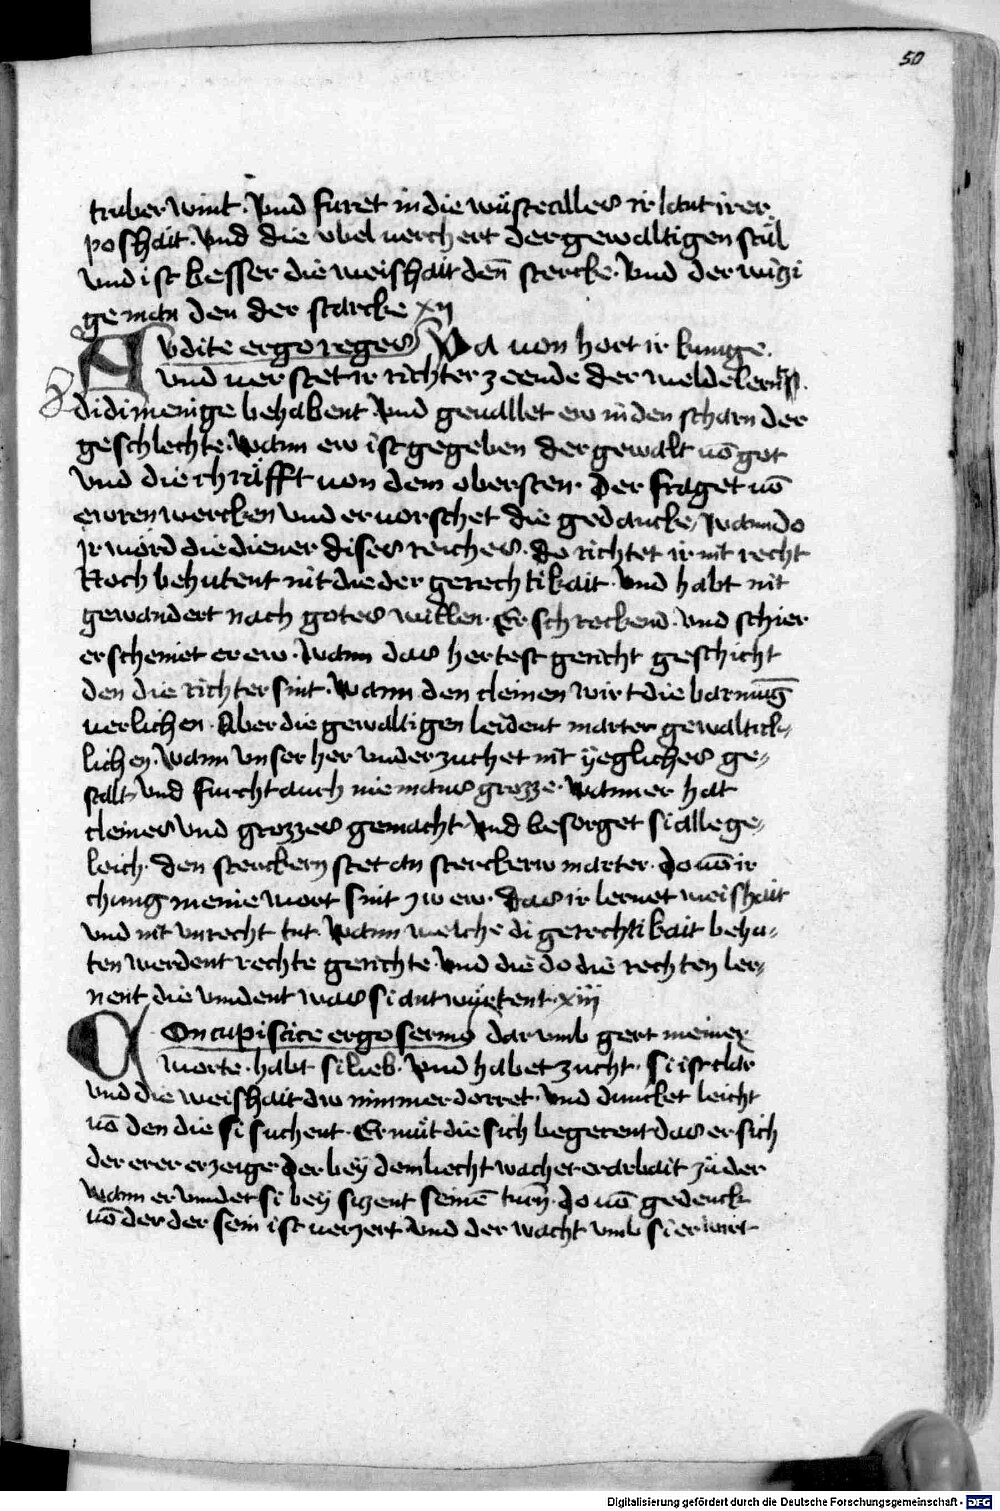 50
truber wint. Vnd furet in die wüste alles ir lant irer
poshait. Vnd die vbel verchert der gewaltigen stül
Vnd ist besser die weishait deñ stercke. Vnd der witzi
ge man den der starcke xij
Avdite ergo reges Da von hort ir kunige.
Vnd verstet ir richter ze ende der welde lernt
di di menige behabent Vnd geuallet ew in den scharn der
geschlechte. Wann ew ist gegeben der gewalt vō got
Vnd die chräfft von dem obersten. Der fraget vō
ewren wercken Vnd eruorschet die gedancke, Wann do
Jr word die diener dises reiches. do richtet ir nit recht
Noch behutent nit die der gerechtikait. Vnd habt nit
gewandert nach gotes willen. Erschreckend. Vnd schier
erscheinet er ew. Wann das hertest gericht geschicht
den die richter sint. Wann den cleinen wirt die barmūg
verlichen. Aber die gewaltigen leident marter gewaltick-
lichen. Wann Vnser her vnderzuchet nit yegliches ge-
stalt, Vnd furcht auch niemans grozze. Wann er hat
cleines Vnd grozzes gemacht. Vnd besorget si alle ge-
leich. den sterckern stet an sterckerw marter. do vō ir
chunig meine wort sint zw ew. das ir lernet weishait
Vnd nit vnrecht tut. Wann welche di gerechtikait behu-
ten werdent rechte gerichte Vnd die do die rechten ler-
nent, die vindent was si antwürtent. xiij
Concupiscite ergo sermo dar vmb gert meiner
worte. habt si lieb. Vnd habet zucht. si ist clar
Vnd die weishait dw nimmer dorret. Vnd duncket leicht
vō den die si suchent. Er mut die sich begerent das er sich
der erer erzeige. Der bey dem liecht wachet er arbait zü der
Wann er vindet si bey sizent seinē türn. do vō gedenck
vō der der sein ist verzert. Vnd der wacht vmb si er wirt
Digitalisierung gefördert durch die Deutsche Forschungsgemeinschaft - DFG